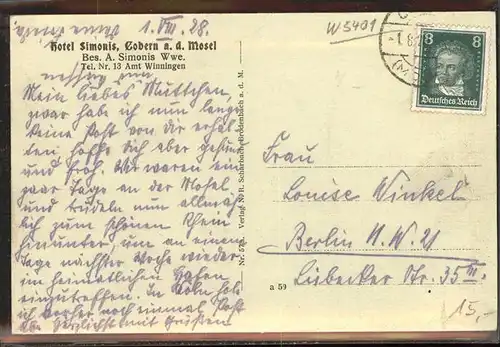 1. VIII. 28.
Hotel Simonis, Codern a. d. Mosel
Bes. A. Simonis Wwe.
Tel. Nr. 13 Amt Winningen
Mein liebes Muttchen,
zwar habe ich nun lange
keine Post von dir erhal-
ten hoffe dich aber gesund
und froh. Wir waren ein
paar Tage an der Mosel
und trudeln nun allmäh-
lich zum schönen Rhein
hinunter, um an einem
Tage nächster Woche wieder
im heimatlichen Hafen
einzutreffen. In Köln hole
ich vorher noch einmal Post
herzlichst mit Grüßen
Nr. 528. Verlag R. Schärbach, Brodenbach a. d. M.
W5401
8 8
Deutsches Reich
Frau
Louise Winkel
Berlin N.W. 21
Lübecker Str. 35 III.
a 59
15,-